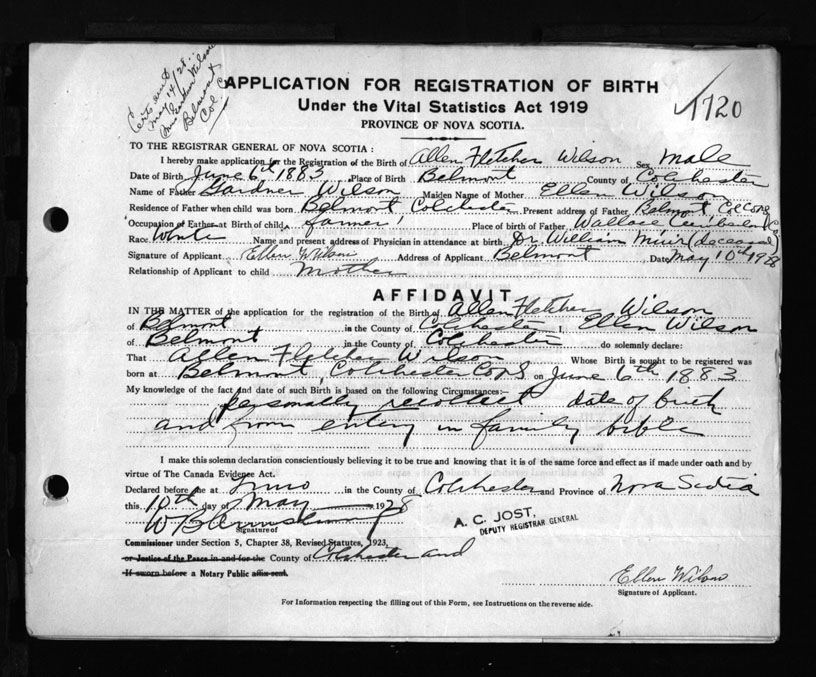 Cert sent
May 14/28
Mrs Ellen Wilson
Belmont
Col Co
APPLICATION FOR REGISTRATION OF BIRTH
Under the Vital Statistics Act 1919
PROVINCE OF NOVA SCOTIA.
1720
TO THE REGISTRAR GENERAL OF NOVA SCOTIA:
I hereby make application for the Registration of the Birth of Allen Fletcher Wilson Sex Male
Date of Birth June 6th 1883 Place of Birth Belmont County of Colchester
Name of Father Gardner Wilson Maiden Name of Mother Ellen Wilson
Residence of Father when child was born Belmont Colchester Present address of Father Belmont, Col Co NS
Occupation of Father at Birth of child farmer Place of Birth of Father Wallace Cumberland Co
Race White Name and present address of Physician in attendance at birth Dr. William Muir (deceased)
Signature of Applicant Ellen Wilson Address of Applicant Belmont Date May 10th 1928
Relationship of Applicant to child Mother
AFFIDAVIT
IN THE MATTER of the application for the registration of the Birth of Allen Fletcher Wilson
of Belmont in the County of Colchester I, Ellen Wilson
of Belmont in the County of Colchester do solemnly declare:
That Allen Fletcher Wilson Whose Birth is sought to be registered was
born at Belmont, Colchester Co NS on June 6th 1883
My knowledge of the fact and date of such Birth is based on the following Circumstances:—
personally recollect date of birth
and from entry in family bible
I make this solemn declaration conscientiously believing it to be true and knowing that it is of the same force and effect as if made under oath and by
virtue of The Canada Evidence Act.
Declared before me at Truro in the County of Colchester and Province of Nova Scotia
this 10th day of May 1928
A. C. JOST,
DEPUTY REGISTRAR GENERAL
Signature of
Commissioner under Section 5, Chapter 38, Revised Statutes, 1923,
or Justice of the Peace in and for the County of Colchester and
If sworn before a Notary Public affix seal.
Ellen Wilson
Signature of Applicant.
For Information respecting the filling out of this Form, see Instructions on the reverse side.